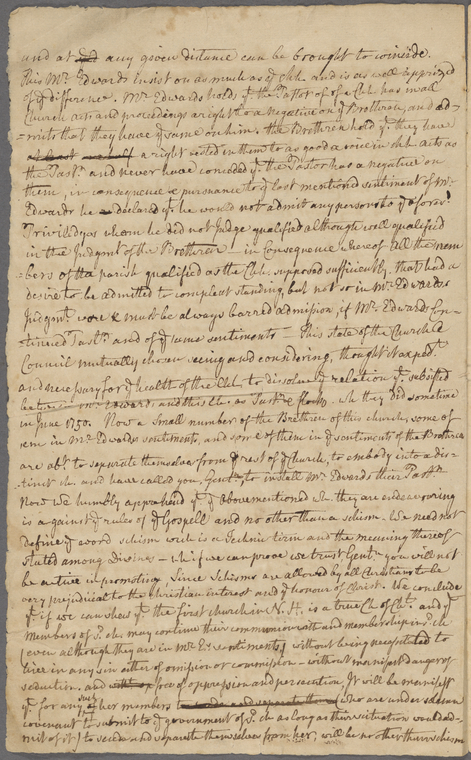 and at any given distance can be brought to coincide.
This Mr. Edwards insist on as much as ye chh. and is as well apprized
of ye difference. Mr. Edwards holds yt the Pastor of a Chh. has in all
Church acts and proceedings a right to a Negative on ye Brethren, and ad-
-mits that they have ye same on him. the Brethren hold yt they have
at least a right vested in them to as good a voice in chh. acts as
the Pastr. and never have conceded yt the Pastor has a negative on
them, in consequence & pursuance to ye last mentioned sentiment of Mr.
Edwards he declared yt he would not admit any person to ye aforesd.
Priviledges whom he did not Judge qualified although well qualified
in the Judgmt. of the Brethren in Consequence whereof all the mem
-bers of the parish qualified as the Chh. supposed sufficiently, that had a
desire to be admitted to compleat standing, but not so in Mr. Edwards
Judgmt. were & must be always barred admission, if Mr. Edwards Con-
-tinued Pastr. and of ye same sentiments — This state of the Church a
Council mutually chosen seeing and considering, thought it expedt.
and necessary for ye health of the Chh. to dissolve ye relation yt subsisted
between Mr. Edwards and this Chh. as Pastr. & flock, wh. they did sometime
in June 1750. Now a small number of the Brethren of this church, some of
em in Mr. Edwards sentiments, and some of them in ye sentiments of the Brethren
are abt. to separate themselves from ye rest of ye Church, to embody into a dis-
-tinct chh. and have called you, Gentn. to install Mr. Edwards their Pastr.
Now we humbly apprehend yt ye abovementioned chh. they are endeavouring
is against ye rules of ye Gospell and no other than a schism. We need not
define ye word schism wch. is a technic term and the meaning thereof
stated among divines — wh. if we can prove we trust Gentn. you will not
be active in promoting. Since Schisms are allowed by all Christians to be
very prejudicial to the Christian interest and ye honour of Christ. We conclude
yt if we can shew yt the first church in N. H. is a true Chh. of Cht. and yt
Members of sd. chh. may continue their communion with and membership in sd. chh.
(even although they are in Mr. Es. sentiments) without being necessitated to
live in any sin either of omission or commission — without manifest danger of
seduction, and free of oppression and persecution. It will be manifest
yt for any of her members who are under solemn
covenant to submit to ye government of sd. chh. as long as their situation would ad-
-mit of it) to secede and separate themselves from her, will be no other than schism